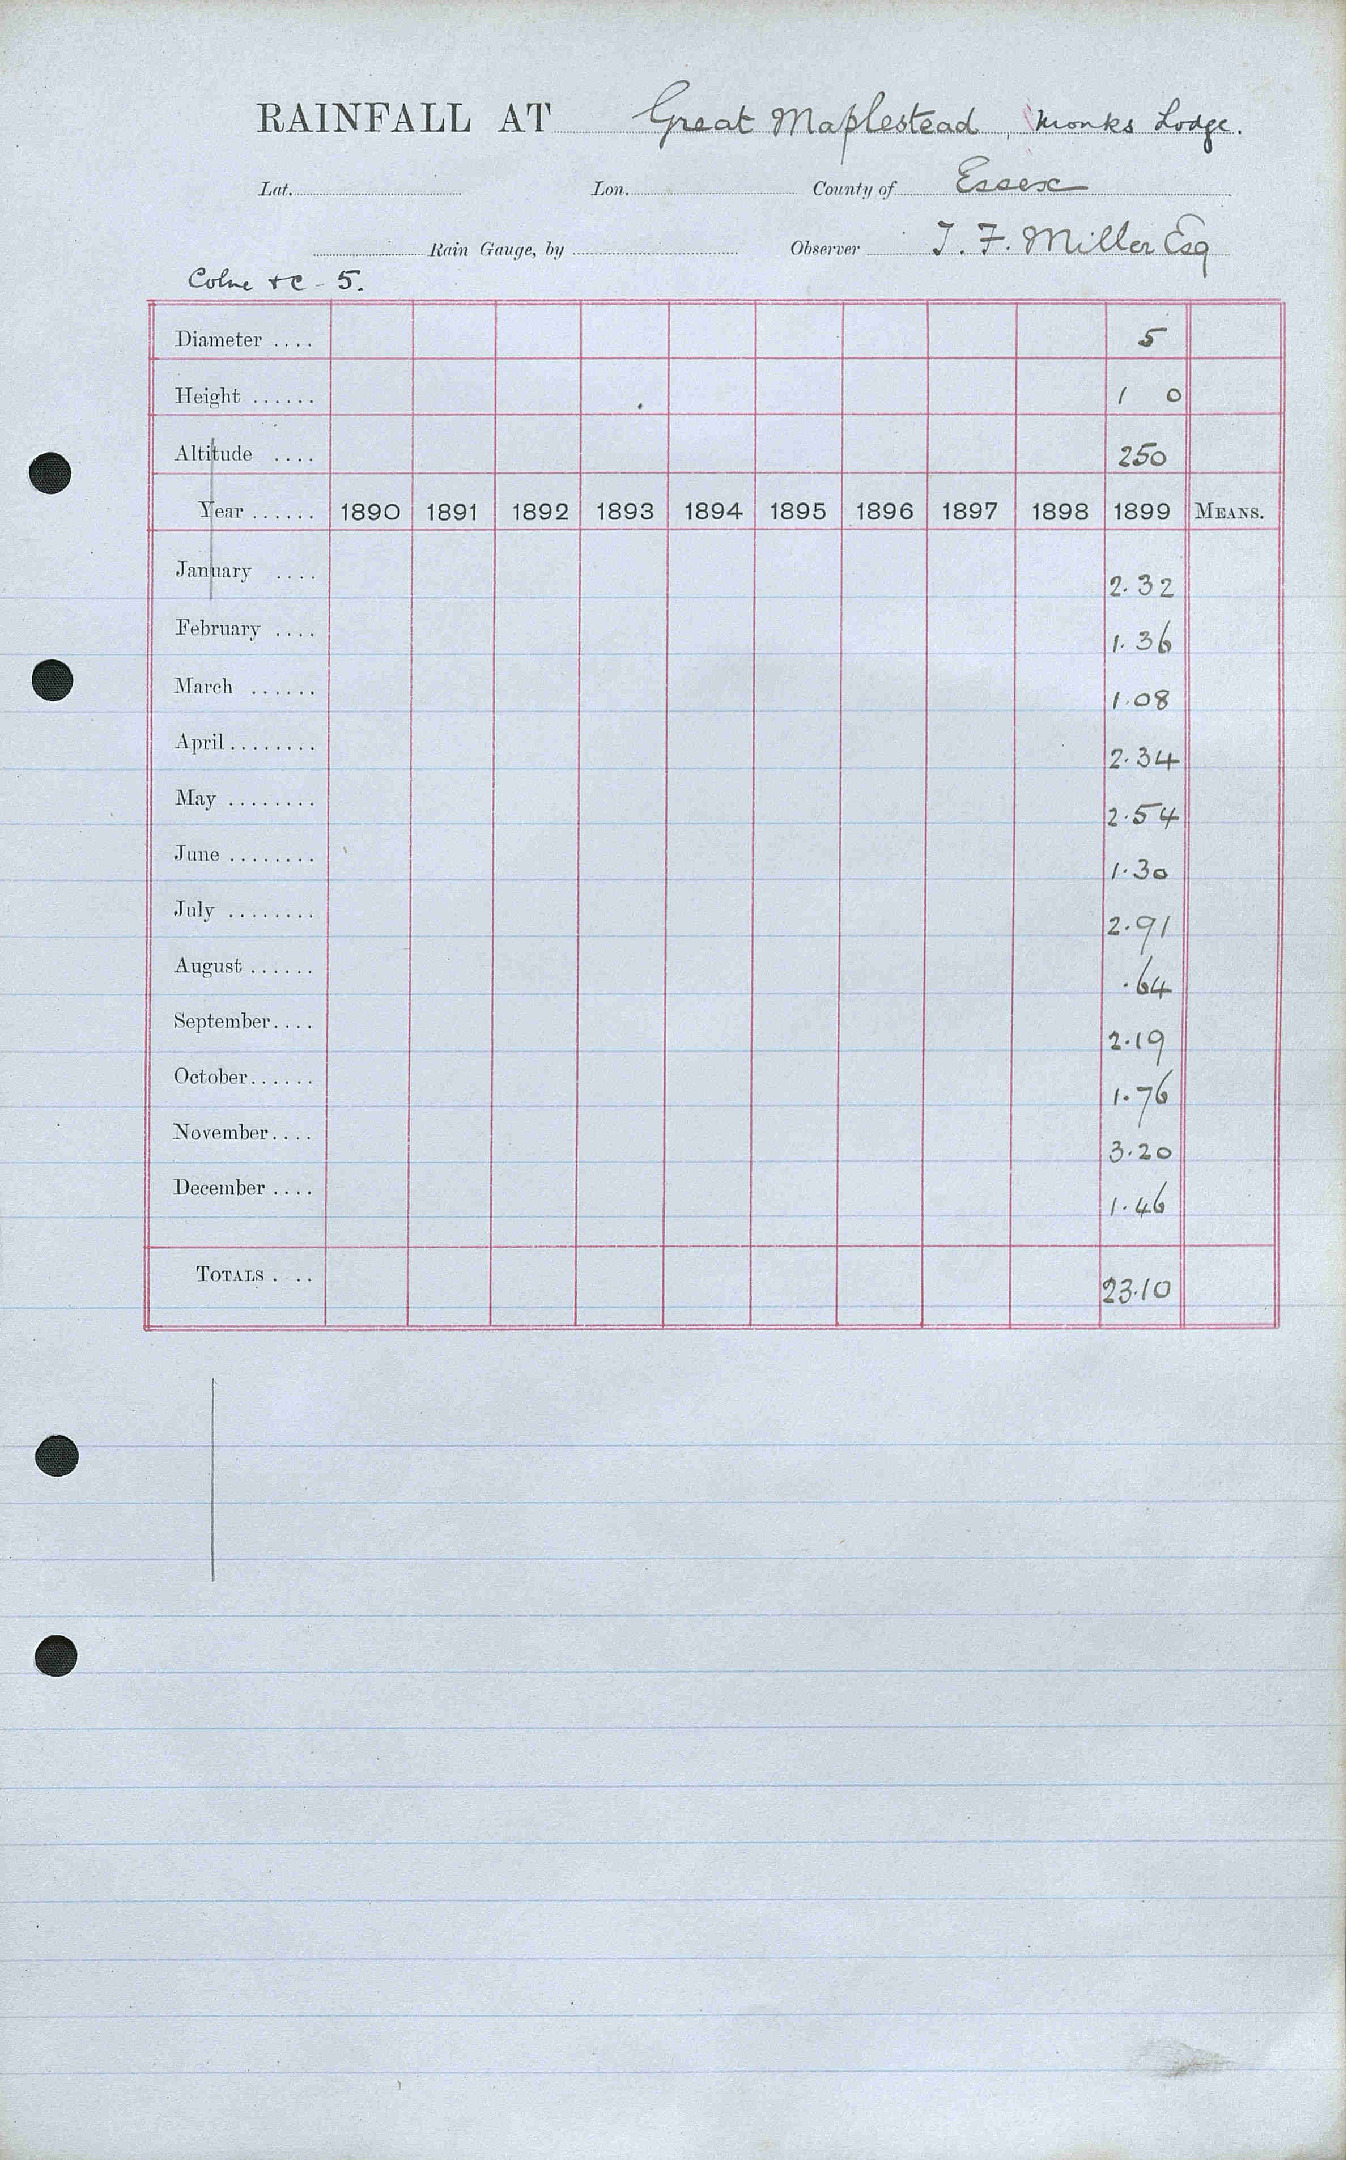 RAINFALL AT Great Maplestead, Monks Lodge.
Lat. Lon. County of Essex
Rain Gauge, by Observer T. F. Miller Esq
Colne &c - 5.
Diameter .... 5
Height ...... 1 0
Altitude .... 250
Year ...... 1890 1891 1892 1893 1894 1895 1896 1897 1898 1899 MEANS.
January .... 2.32
February .... 1.36
March ...... 1.08
April ........ 2.34
May ........ 2.54
June ........ 1.30
July ........ 2.91
August ...... .64
September .... 2.19
October ...... 1.76
November .... 3.20
December .... 1.46
TOTALS . .. 23.10